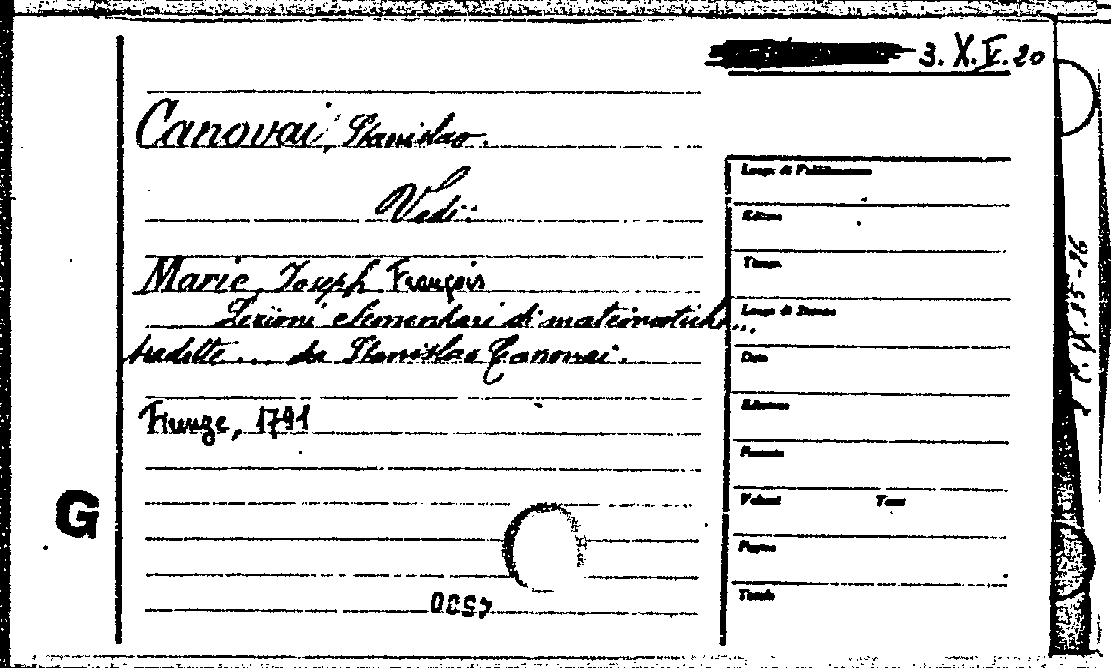 3. X. V. 20
Canovai, Stanislao.
Vedi:
Marie, Joseph François
Lezioni elementari di matematiche...
tradotte... da Stanislao Canovai.
Firenze, 1791
Luogo di Pubblicazione
Editore
Tipogr.
Luogo di Stampa
Data
Edizione
Formato
Volumi Tomi
Pagine
Tavole
G